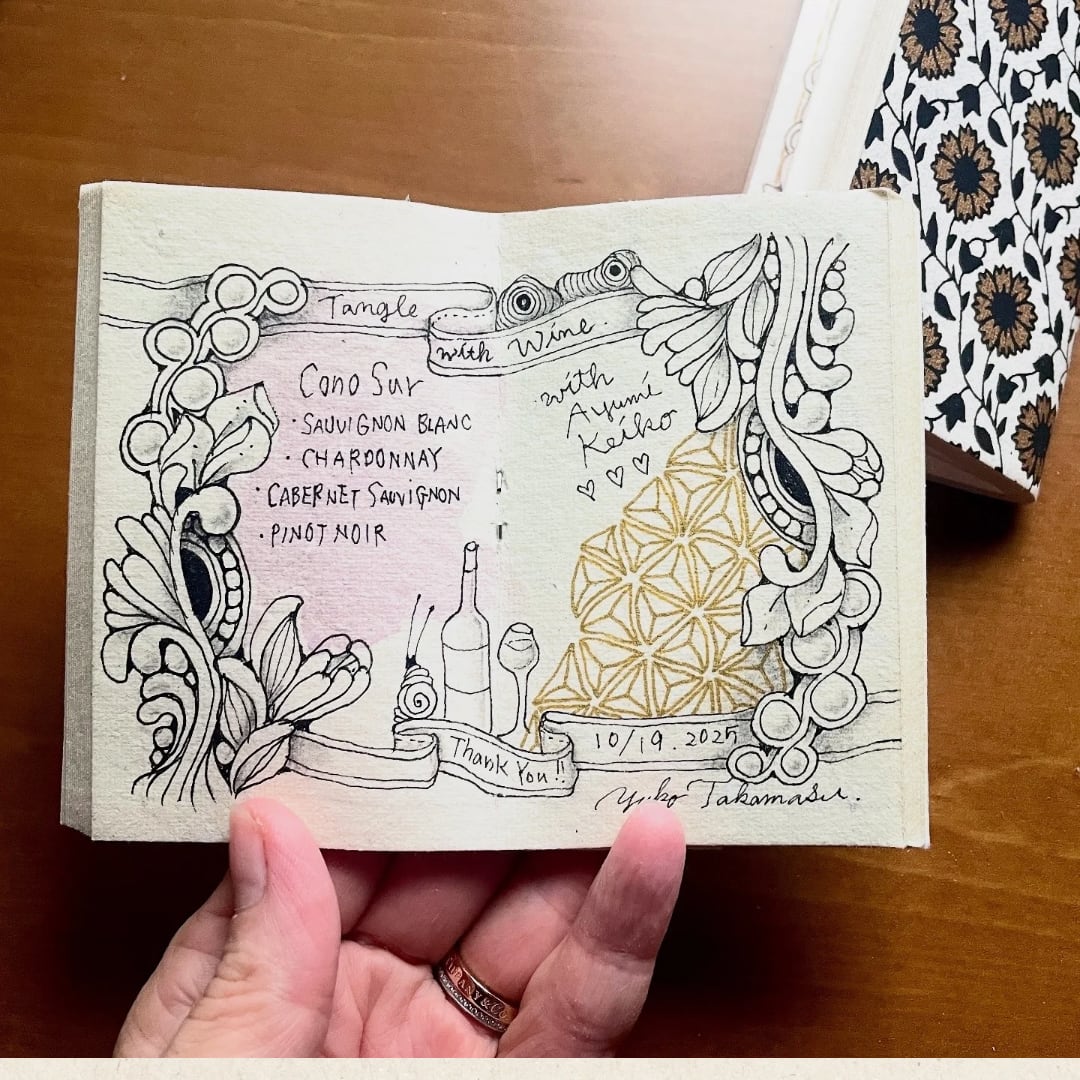 Tangle
with Wine.
Cono Sur
·SAUVIGNON BLANC
·CHARDONNAY
·CABERNET SAUVIGNON
·PINOT NOIR
with
Ayumi
Keiko
Thank You!!
10/19.2025
Yuko Takamasu.
TIFFANY&Co